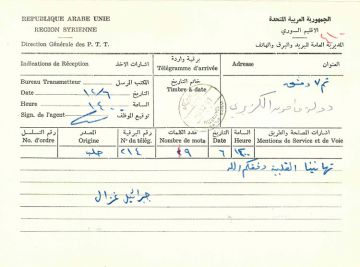 REPUBLIQUE ARABE UNIE
REGION SYRIENNE
Direction Générales des P. T. T.
الجمهورية العربية المتحدة
الاقليم السوري
المديرية العامة للبريد والبرق والهاتف
Indications de Réception
اشارات الاخذ
برقية واردة
Télégramme d'arrivée
Adresse
العنوان
Bureau Transmetteur
المكتب المرسل
خاتم التاريخ
Timbre à date
Date
التاريخ
١٤/٦
Heure
الساعة
١٤٠٠
Sign. de l'agent
توقيع الموظف
دمشق
دولة مأمون الكزبري
رقم التسلسل
No. d'ordre
المصدر
Origine
رقم البرقية
Nº du télég.
عدد الكلمات
Nombre de mots
التاريخ
Date
الساعة
Heure
اشارات الصلحة والطريق
Mentions de Service et de Voie
حلب
٢١٤
٩
٦
١٣٠٠
تهانينا القلبية وفقكم الله
جبرائيل غزال